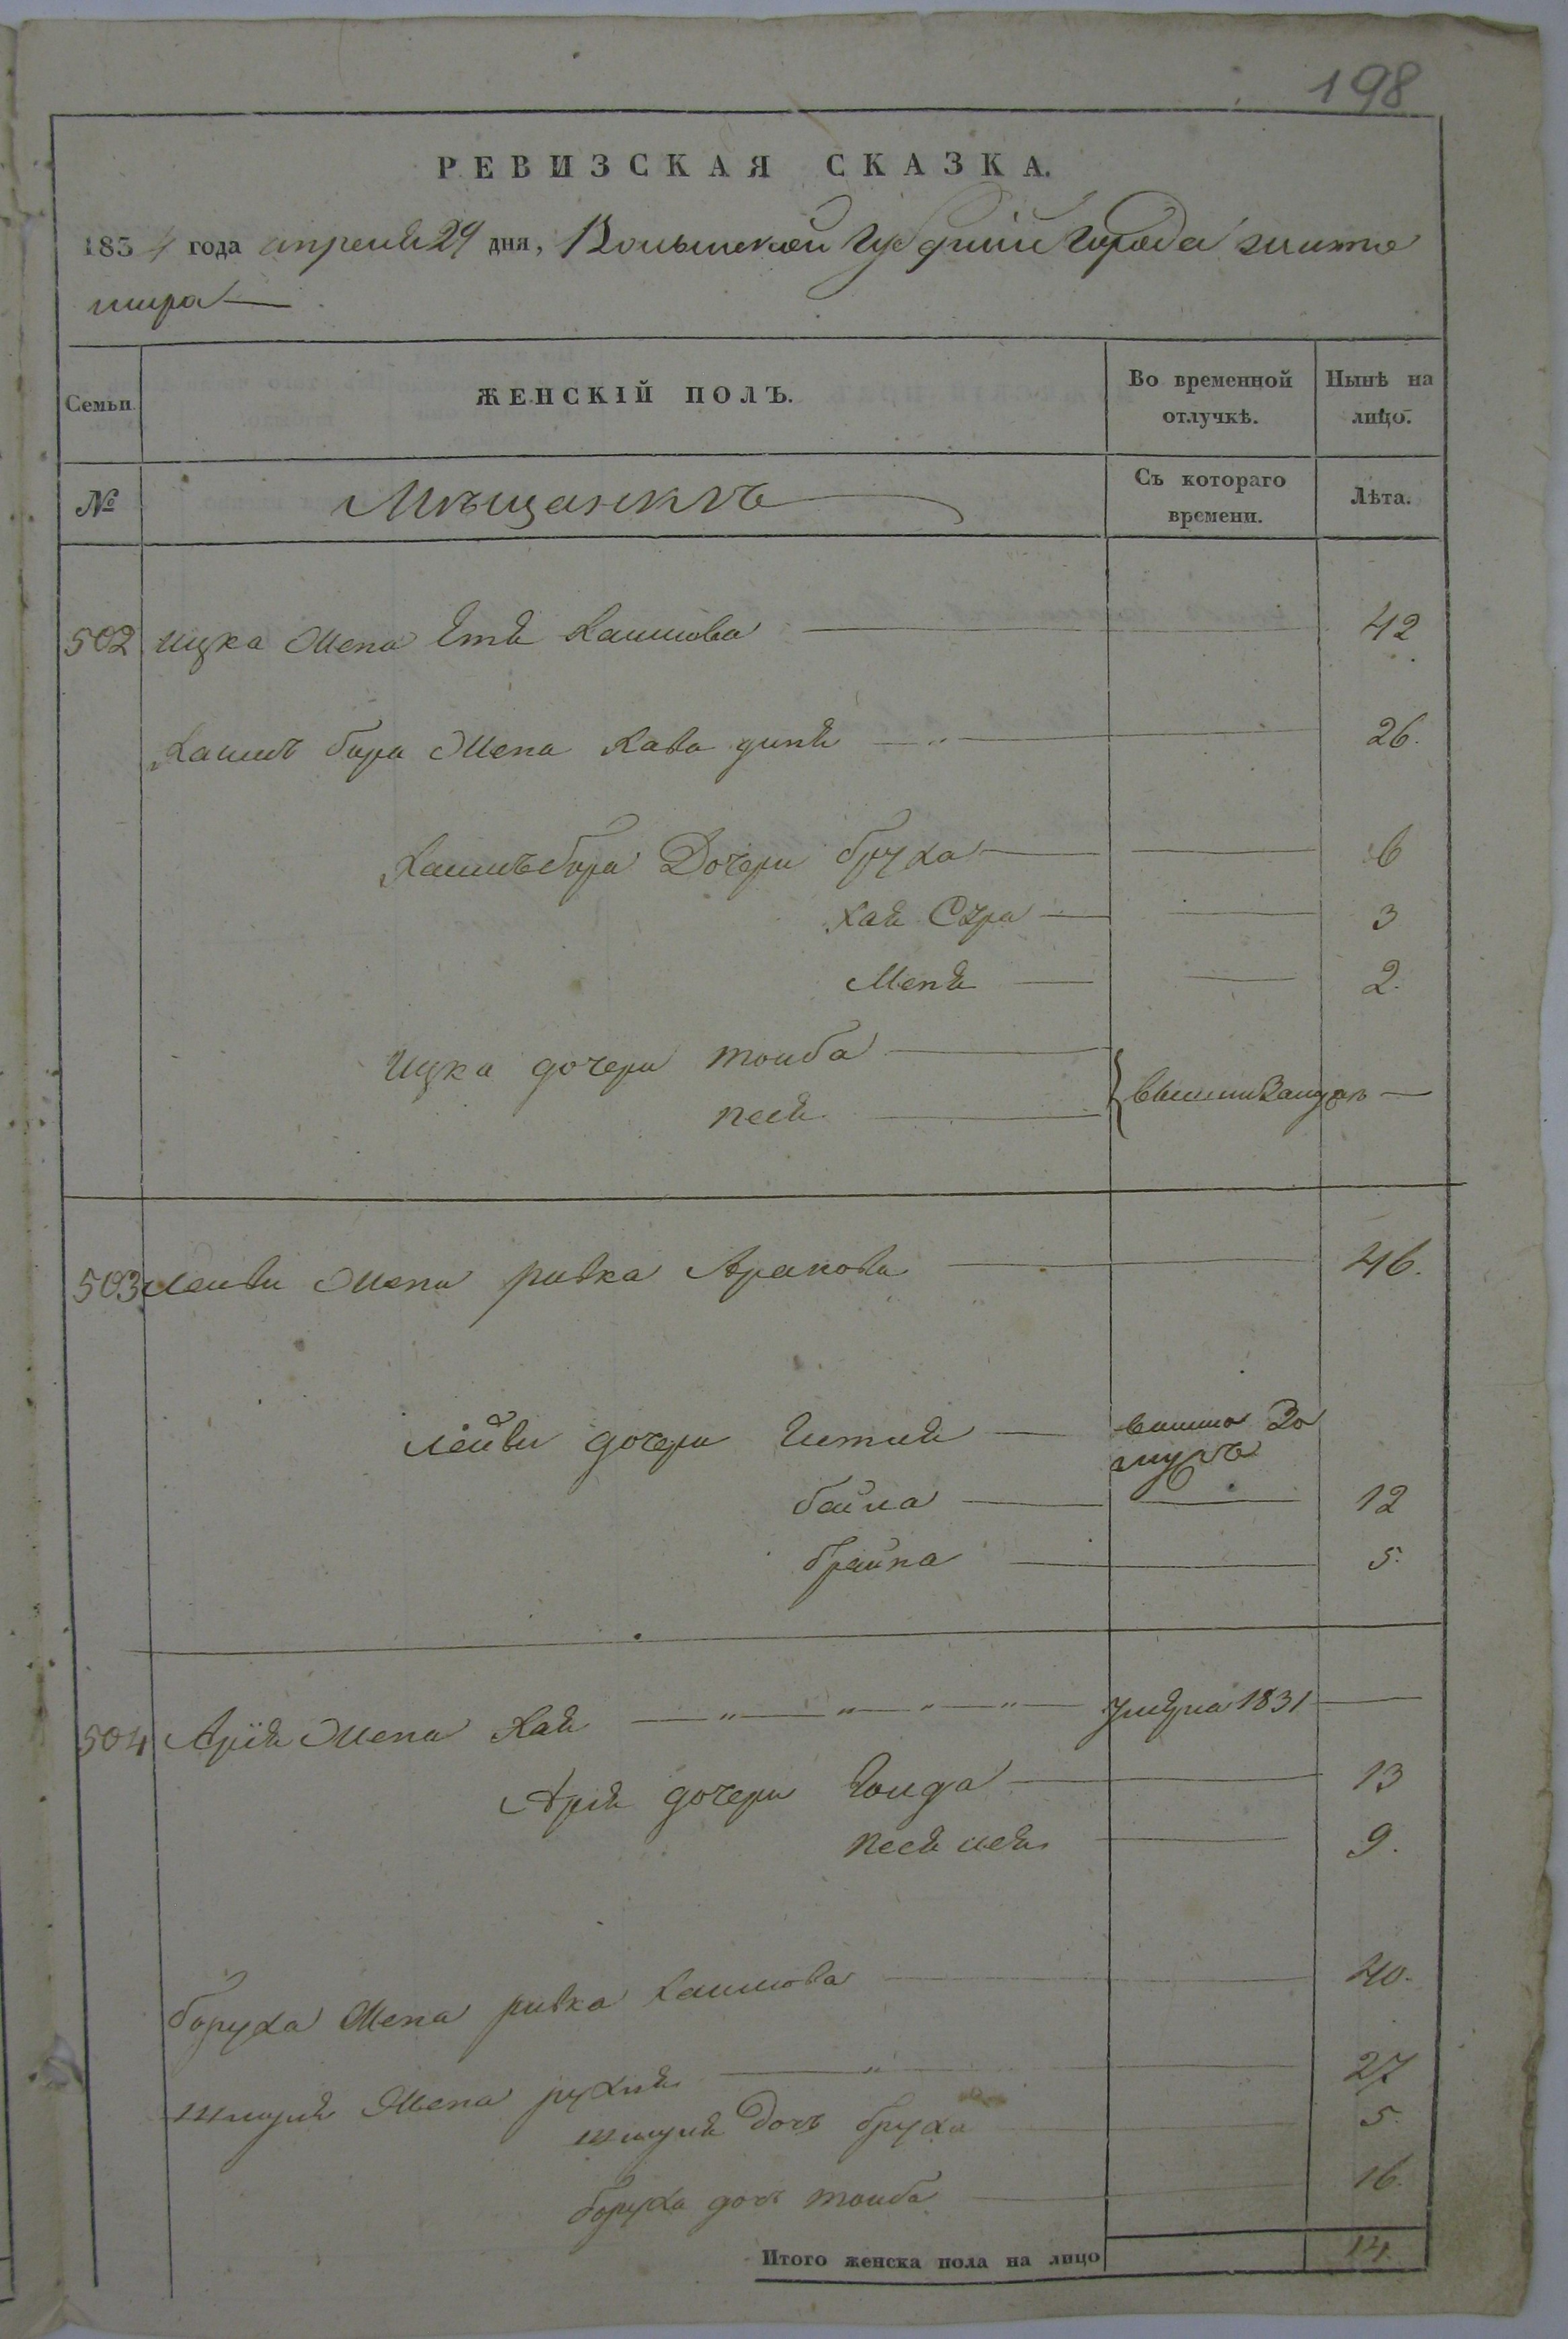 198
РЕВИЗСКАЯ СКАЗКА.
1834 года апреля 29 дня, Волынской Губернии Города Жито
мира
Семьи
ЖЕНСКІЙ ПОЛЪ.
Во временной отлучкѣ.
Нынѣ на лицо.
№
Мѣщанкъ
Съ котораго времени.
Лѣта.
502 Ицка Жена Етя Хаимова 42
Хаимъ бера Жена Хава 26.
Хаимъ бера Дочери бруха 6
Хая Сура 3
Меня 2.
Ицка дочери тоиба
песя
вышли Замужъ
503 Лейви Жена ривка Аронова 46.
Лейви дочери вишла За
мужъ
бейла 12
брайна 5.
504 Арія Жена Хая умерла 1831
Арія дочери Голда 13
песя лея 9.
боруха Жена ривка Хаимова 40.
шмуля Жена рухля 27
шмуля Дочь бруха 5.
боруха дочь тоиба 16.
Итого женска пола на лицо 14.